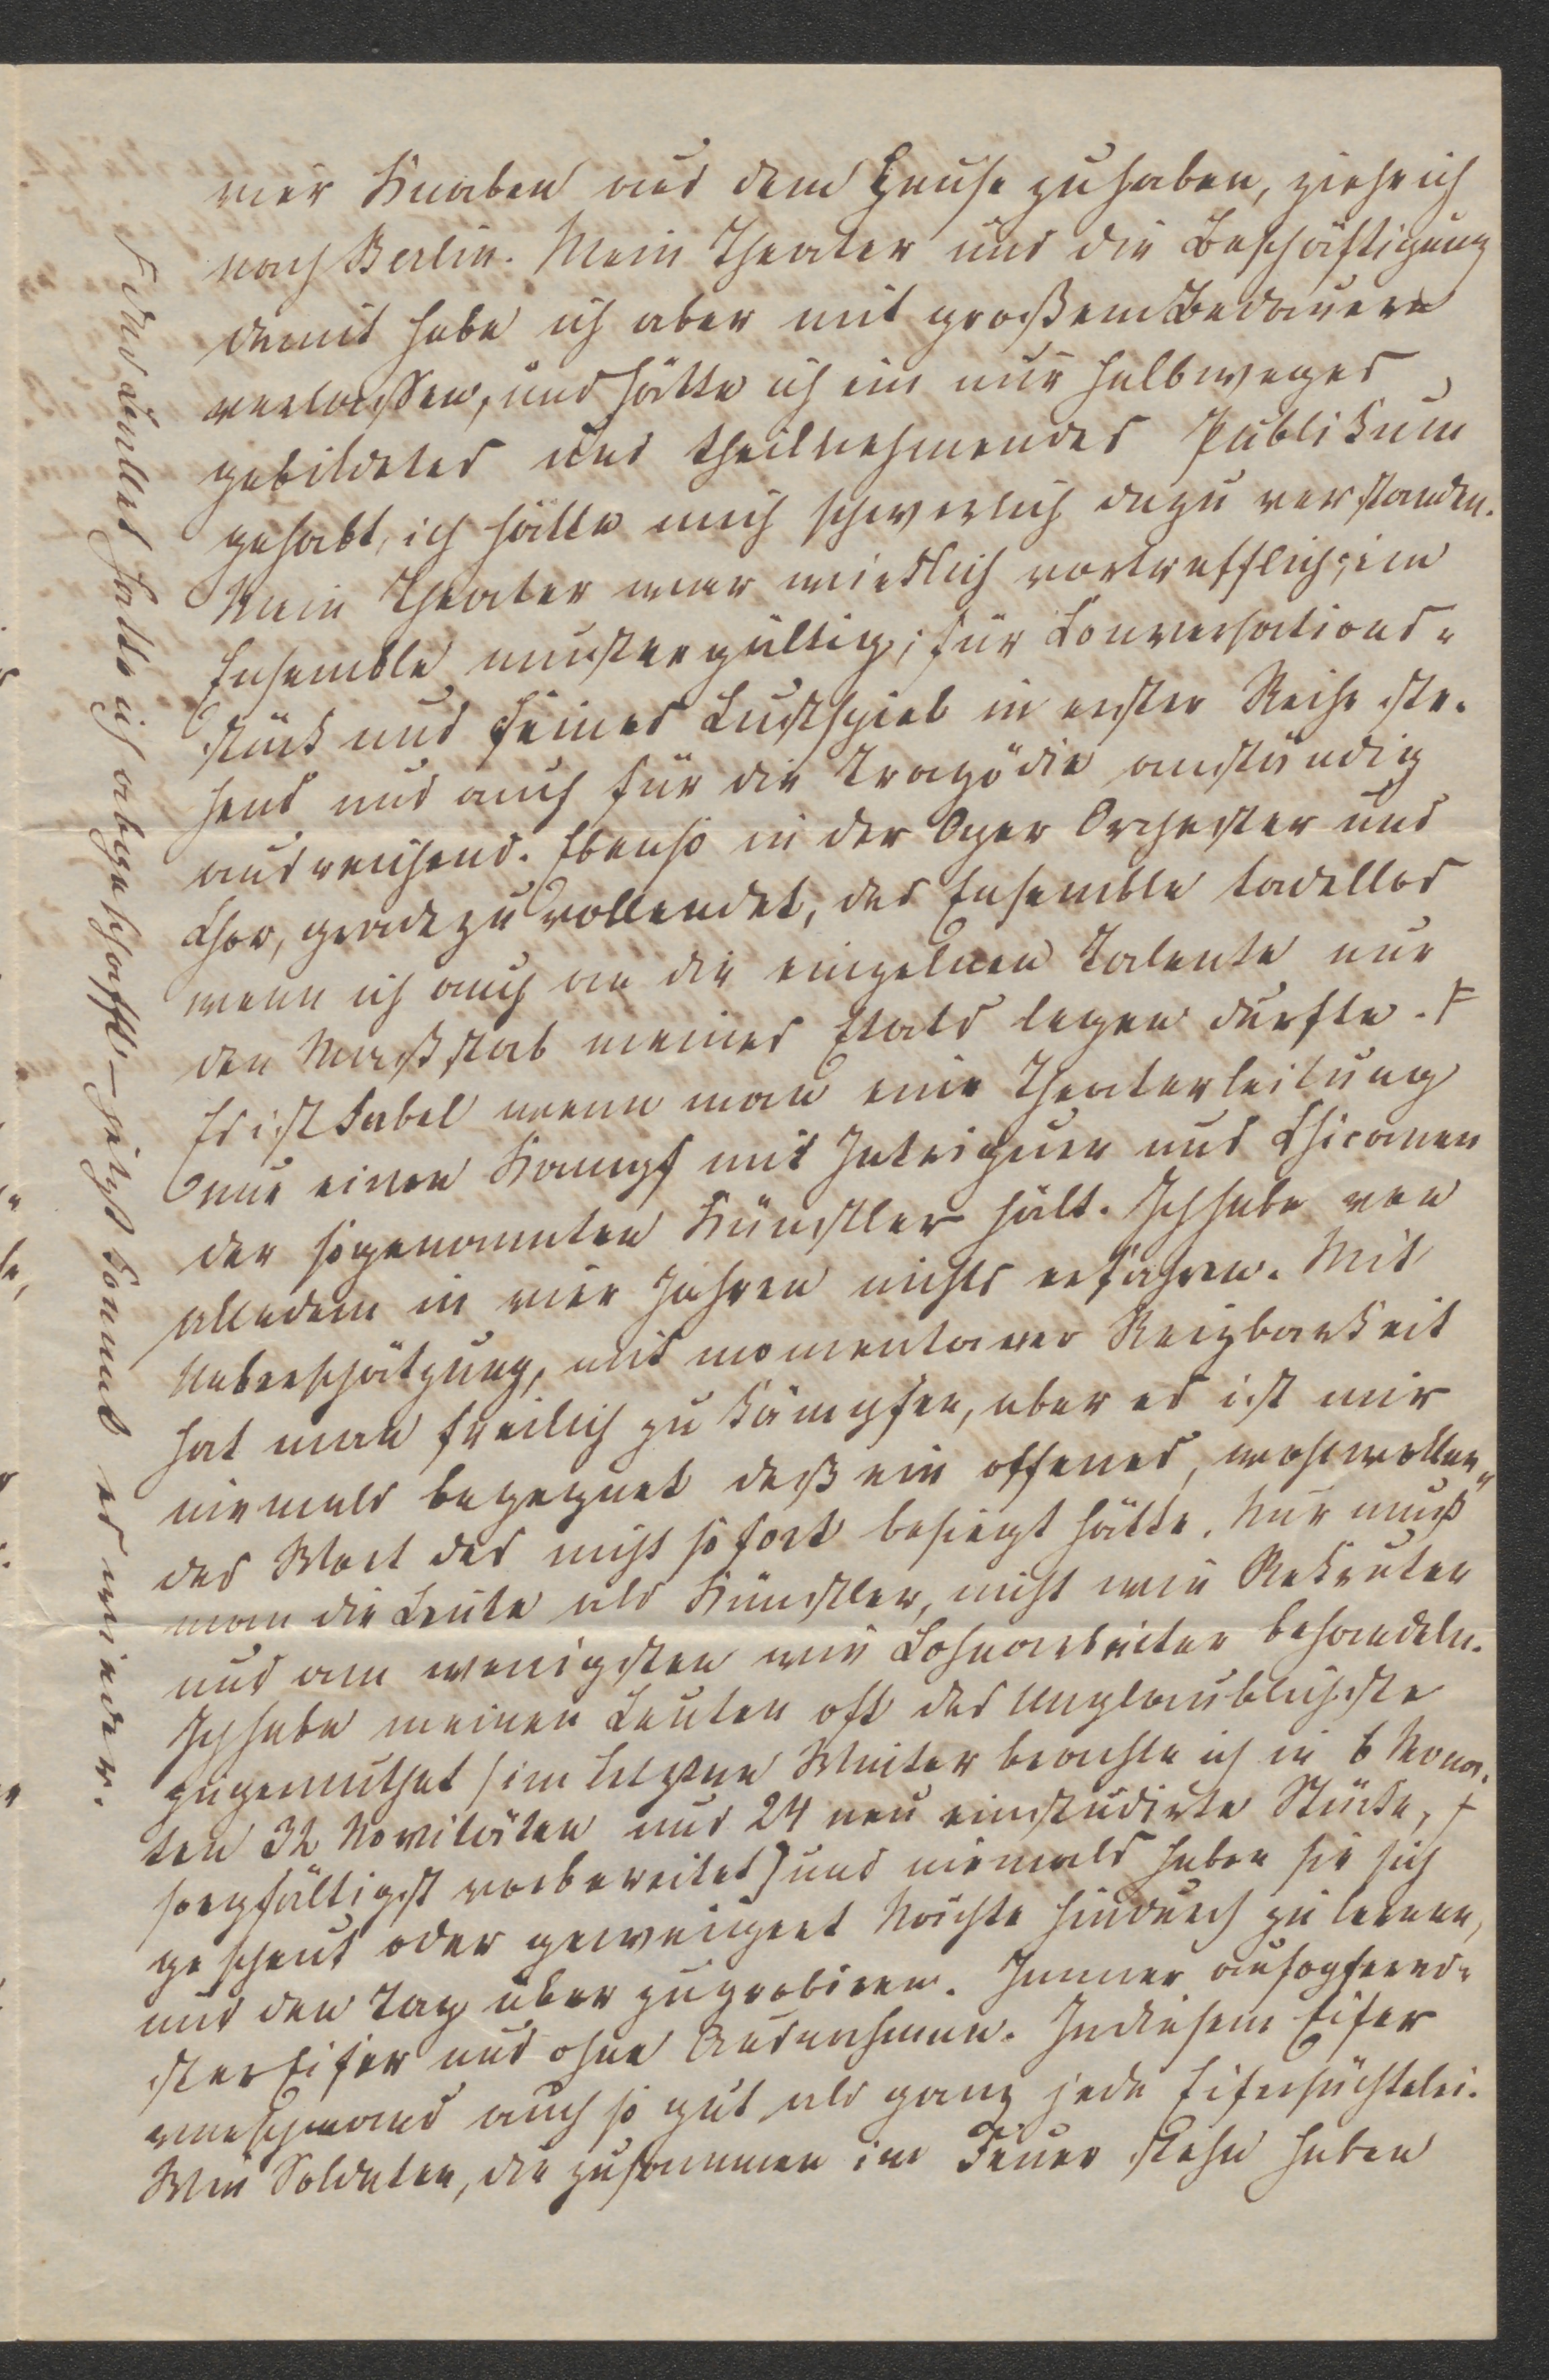 vier Knaben aus dem Hause zu haben, ziehe ich
nach Berlin. Mein Theater und die Beschäftigung
damit habe ich aber mit großem Bedauern
verlassen, und hätte ich ein nur halbweges
gebildetes und theilnehmendes Publikum
gehabt, ich hätte mich schwerlich dazu verstanden.
Mein Theater war wirklich vortrefflich; im
Ensemble mustergültig; für Conversations-
stück und feines Lustspiel in erster Reihe ste-
hend und auch für die Tragödie anständig
ausreichend. Ebenso in der Oper Orchester und
Chor, gradezu vollendet, das Ensemble tadellos
wenn ich auch an die einzelnen Talente nur
den Maßstab meines Etats legen durfte. F
Es ist Fabel wenn man eine Theaterleitung
nur einen Kampf mit Intriguen und Chicanen
der sogenannten Künstler hält. Ich habe von
alledem in vier Jahren nichts erfahren. Mit
Ueberschätzung, mit momentaner Reizbarkeit
hat man freilich zu kämpfen, aber es ist mir
niemals begegnet daß ein offenes, wohlwollen-
des Wort das nicht sofort besiegt hätte. Nur muß
man die Leute als Künstler, nicht wie Rekruten
und am wenigsten wie Lohnarbeiter behandeln.
Ich habe meinen Leuten oft das Unglaublichste
zugemuthet (im letzten Winter brachte ich in 6 Mona-
ten 32 Novitäten und 24 neu einstudirte Stücke,
sorgfältigst vorbereitet) und niemals haben sie sich
gescheut oder geweigert Nächte hindurch zu lernen,
und den Tag über zu probiren. Immer aufopfernd-
ster Eifer und ohne Ausnahmen. In diesem Eifer
verschwand auch so gut als ganz jede Eifersüchtelei.
Wie Soldaten, die zusammen im Feuer stehn haben
F das Ballet hatte ich abgeschafft – jetzt kommt es wieder.